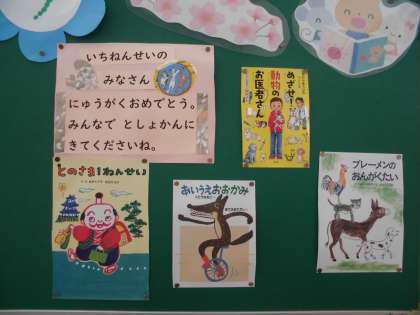 いちねんせいの
みなさん
にゅうがくおめでとう。
みんなで としょかんに
きてくださいね。
めざせ!
動物の
お医者さん
とのさま1ねんせい
あいうえおおかみ
ブレーメンの
おんがくたい